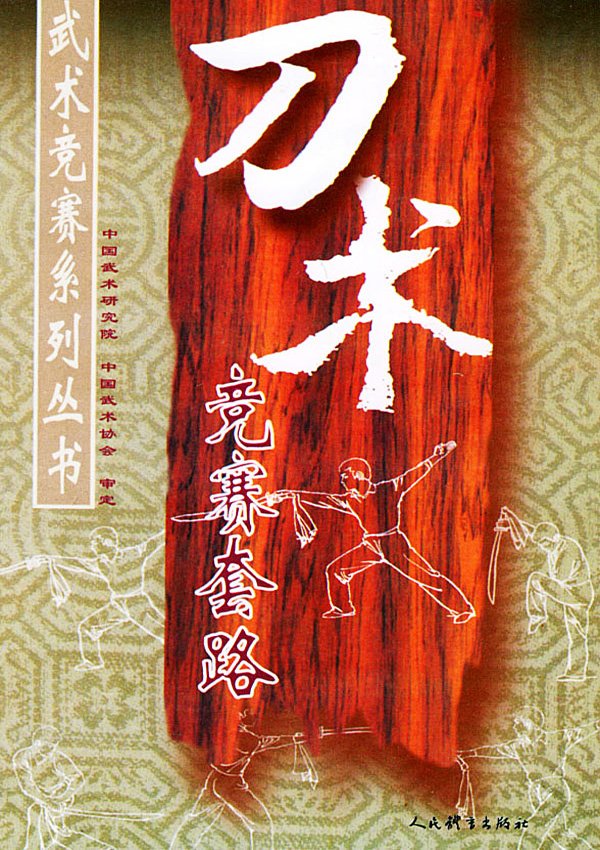 武术竞赛系列丛书
中国武术研究院 中国武术协会 审定
刀术
竞赛套路
人民体育出版社